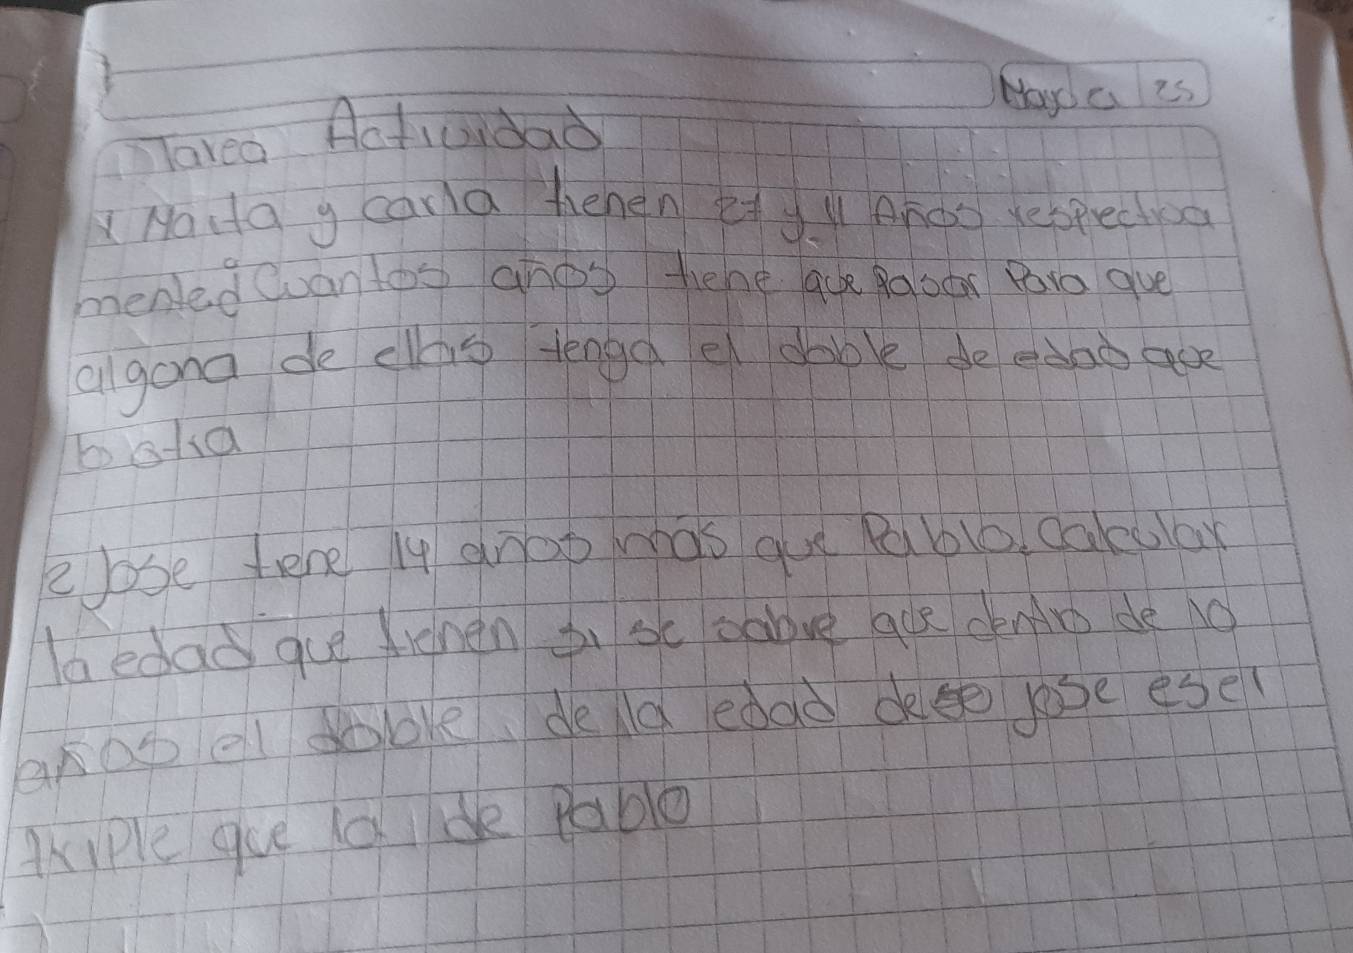 Mayo a 25
Tarea Actividad
1 Marta y carla tienen 27 y 11 Años respectiva
mente¿Cuantos años tiene que pasar Para que
alguna de ellas tenga el doble de edad que
b otra
2 Jose tiene 14 años más que Pablo. Calcular
la edad que tienen si se sabve que dentro de 10
años el doble de la edad de jose esel
triple que la de Pablo